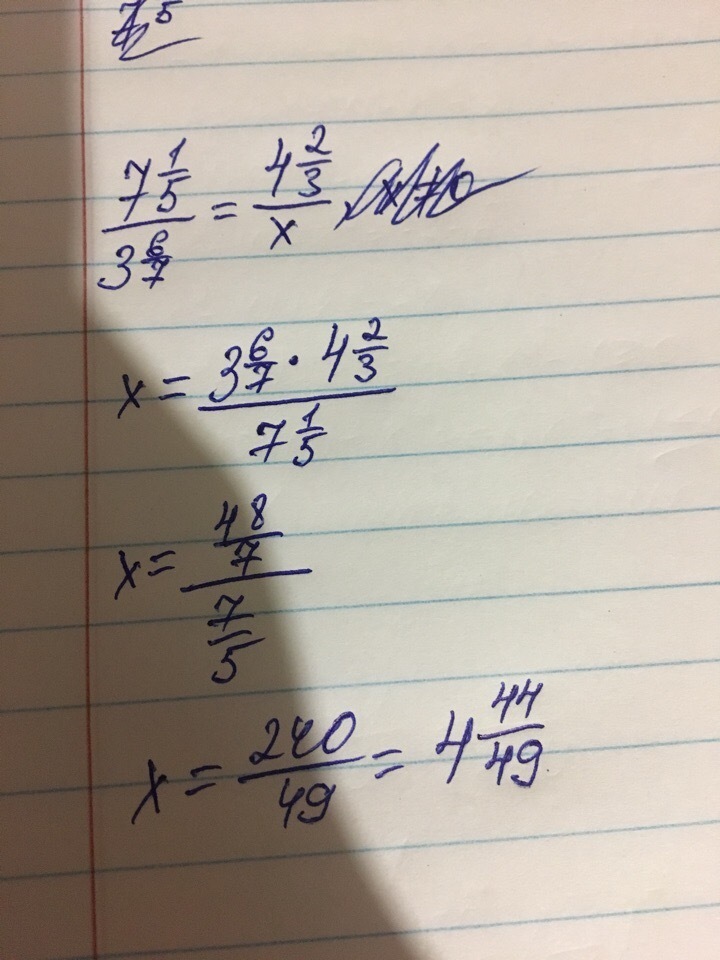 7 1/5 / 3 6/7 = 4 2/3 / x
x = 3 6/7 · 4 2/3 / 7 1/5
x = 48/7 / 7/5
x = 240/49 = 4 44/49